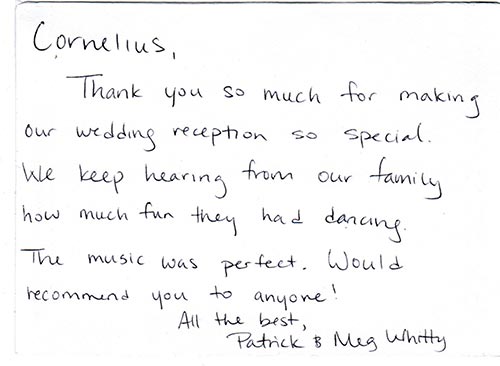 Cornelius,
Thank you so much for making
our wedding reception so special.
We keep hearing from our family
how much fun they had dancing.
The music was perfect. Would
recommend you to anyone!
All the best,
Patrick & Meg Whitty